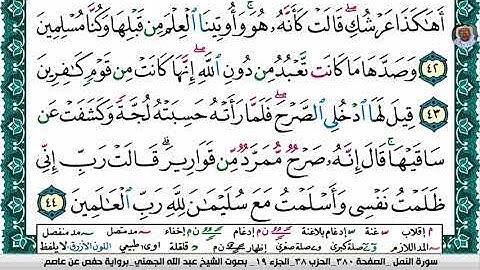 أَهَٰكَذَا عَرْشُكِ ۖ قَالَتْ كَأَنَّهُۥ هُوَ ۚ وَأُوتِينَا ٱلْعِلْمَ مِن قَبْلِهَا وَكُنَّا مُسْلِمِينَ
٤٢ وَصَدَّهَا مَا كَانَت تَّعْبُدُ مِن دُونِ ٱللَّهِ ۖ إِنَّهَا كَانَتْ مِن قَوْمٍ كَٰفِرِينَ
٤٣ قِيلَ لَهَا ٱدْخُلِى ٱلصَّرْحَ ۖ فَلَمَّا رَأَتْهُ حَسِبَتْهُ لُجَّةً وَكَشَفَتْ عَن
سَاقَيْهَا ۚ قَالَ إِنَّهُۥ صَرْحٌ مُّمَرَّدٌ مِّن قَوَارِيرَ ۗ قَالَتْ رَبِّ إِنِّى
ظَلَمْتُ نَفْسِى وَأَسْلَمْتُ مَعَ سُلَيْمَٰنَ لِلَّهِ رَبِّ ٱلْعَٰلَمِينَ ٤٤
م إقلاب غنة إدغام بلاغنة إدغام إخفاء مد متصل مد منفصل
المد اللازم صلة كبرى صلة صغرى إظهار قلقلة اوى طبيعي اللون الأزرق لا يلفظ
سورة النمل _الصفحة ٣٨٠_الحزب ٣٨_الجزء ١٩_ بصوت الشيخ عبد الله الجهني_برواية حفص عن عاصم